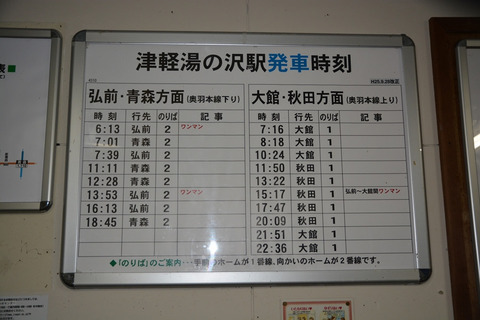 津軽湯の沢駅発車時刻
弘前・青森方面(奥羽本線下り)
時刻 行先 のりば 記事
6:13 弘前 2 ワンマン
7:01 青森 2
7:39 弘前 2
11:11 青森 2
12:28 青森 2
13:53 弘前 2 ワンマン
16:13 弘前 2
18:45 青森 2
大館・秋田方面(奥羽本線上り)
時刻 行先 のりば 記事
7:16 大館 1
8:18 大館 1
10:24 大館 1
11:50 秋田 1
13:22 秋田 1
15:17 秋田 1 弘前~大館間ワンマン
17:47 秋田 1
20:09 秋田 1
21:51 大館 1
22:36 大館 1
◆「のりば」のご案内・・・手前のホームが1番線、向かいのホームが2番線です。